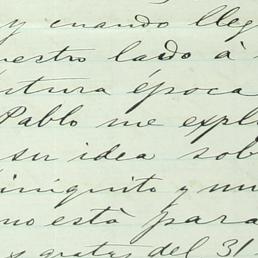 y cuando lleg
uestro lado à
ntura época
Pablo me expli
su idea sob
iniquito y mu
no està para
gratas del 31